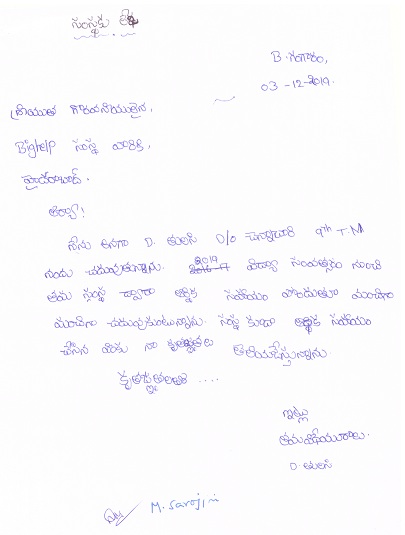 సంస్థకు లేఖ
B. గంగారం,
03-12-2019.
శ్రీయుత గౌరవనీయులైన,
Bighelp సంస్థ వారికి,
హైదరాబాద్.
ఆర్యా!
నేను అనగా D. తులసి D/o చెన్నాచారి 9th T.M
నందు చదువుతున్నాను. 2019 విద్యా సంవత్సరం నుంచి
తమ సంస్థ ద్వారా ఆర్థిక సహాయం పొందుతూ మంచిగా
మంచిగా చదువుకుంటున్నాను. సంస్థ కుడా ఆర్థిక సహాయం
చేసిన వారకు నా కృతజ్ఞతలు తెలియచేస్తున్నాను.
కృతజ్ఞతలతో ....
ఇట్లు
తమ విధేయురాలు.
D. తులసి
M. Sarojini